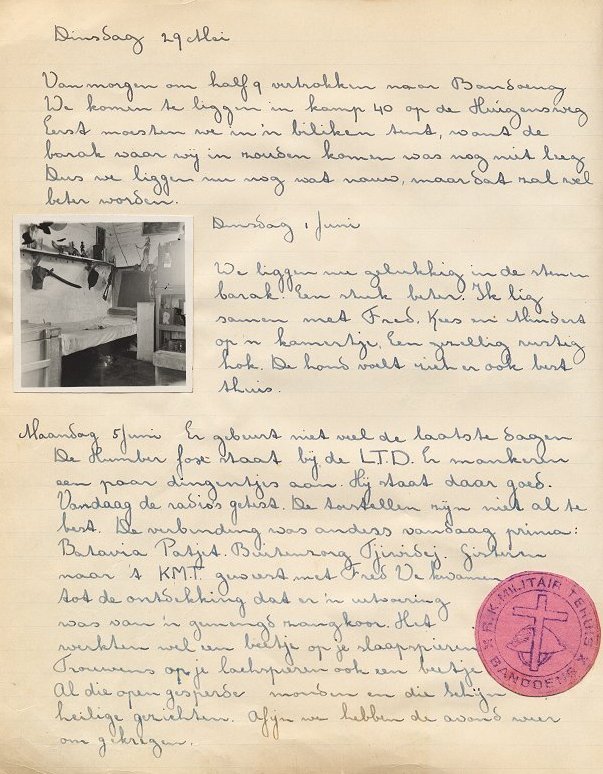 Dinsdag 29 Mei
Van morgen om half 9 vertrokken naar Bandoeng
We komen te liggen in kamp 40 op de Huigensweg
Eerst moesten we in 'n biliken tent, want de
barak waar wij in zouden komen was nog niet leeg
Dus we liggen nu nog wat nauw, maar dat zal wel
beter worden.
Dinsdag 1 Juni
We liggen nu gelukkig in de stenen
barak. Een stuk beter. Ik lig
samen met Fred. Kees en Mindert
op 'n kamertje. Een gezellig rustig
hok. De hond voelt zich er ook best
thuis.
Maandag 5 Juni Er gebeurt niet veel de laatste dagen
De Humber fox staat bij de L.T.D. Er mankeren
een paar dingentjes aan. Hij staat daar goed.
Vandaag de radio's getest. De toestellen zijn niet al te
best. De verbinding was anders vandaag prima:
Batavia Patjet. Buitenzorg Tjividej. Gisteren
naar 't KMT. geweest met Fred We kwamen
tot de ontdekking dat er 'n uitvoering
was van 'n gemengd zangkoor. Het
werkten wel een beetje op je slaapspieren
Trouwens op je lachspieren ook een beetje
Al die open gesperde monden en die
heilige gezichten. Afijn we hebben de avond weer
om gekregen.
R.K. MILITAIR TEHUIS
BANDOENG